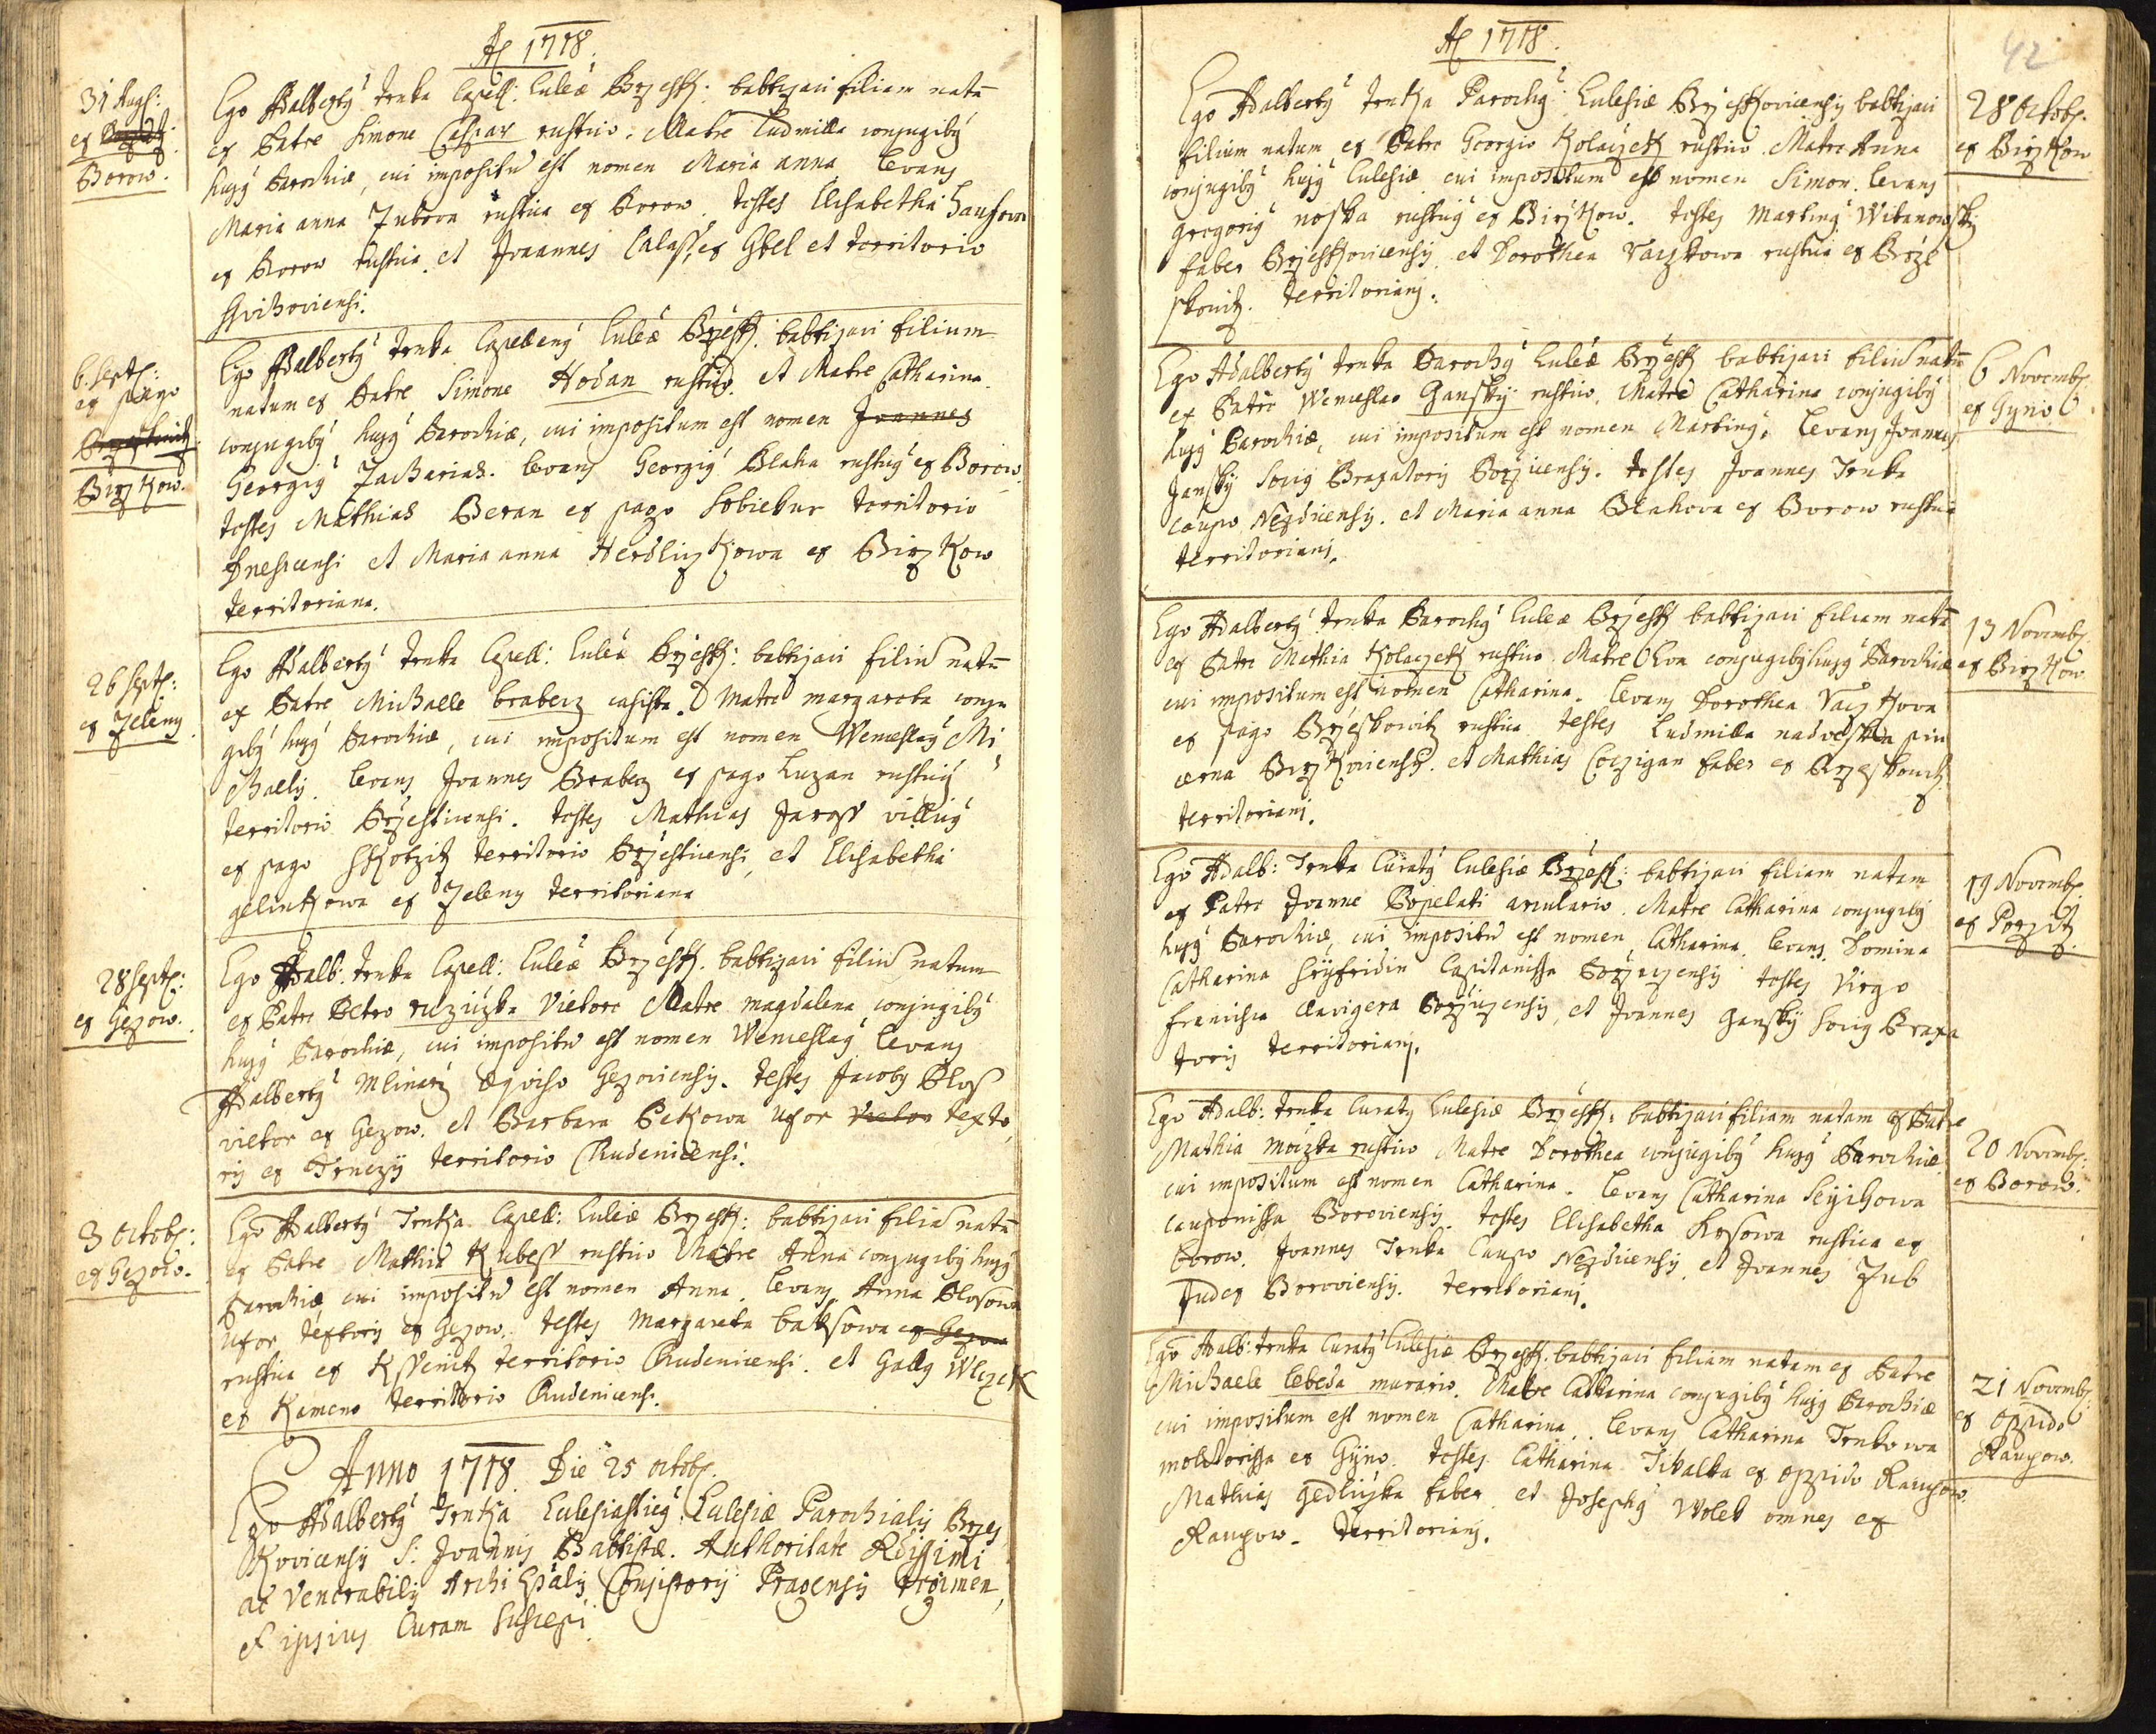 A 1718.
31 Aug:
ex
Borow.
Ego Adalbertý Trnka Capell: Eccleæ Brzesk: babtizavi filiam natā
ex Patre Simone Caspar rustico. Matre Ludmilla conjugibý
hujý Parochiæ, cui impositū est nomen Maria anna levans
Maria anna Zubova rustica ex Borow. testes Elisabetha
ex Borow rustica et Joannes ex Gbel et territorio

6. Sept:
ex pago
Birzkow.
Ego Adalbertý Trnka Capellaný Ecclæ Brzesk. babtizavi filium
natum ex Patre Simone Hodan rustico. et Matre Catharina
conjugibý hujý Parochiæ, cui impositum est nomen Joannes
Georgiý Zacharias. levans Georgiý Blaha rusticý ex Borow.
testes Mathias Beran ex pago Sobiekur territorio
et Maria anna Herdliczkowa ex Birzkow
territoriana.
26 Sept:
ex Zeleny
Ego Adalbertý Trnka Capell: Ecclæ Brzesk: babtizavi filiū natū
ex Patre Michaelle brabecz casista. Matre margareta conju
gibý hujý Parochiæ, cui impositum est nomen Wenceslaý Mi
chaelis. levans Joannes Brabecz ex pago Luzan rusticý
territorio Brzestiucensi. testes Mathias Jaross villicý
ex pago Skotzitz territorio Brzestiucensi, et Elisabetha
gelinkowa ex Zeleny territoriana
28 Sept:
ex Gezow.
Ego Adalb: Trnka Capell: Ecclæ Brzesk. babtizavi filiū natum
ex Patre Petro ruziczka Vietore Matre magdalena conjugibý
hujý Parochiæ, cui impositū est nomen Wenceslaý levans
Adalbertý Mlinarz Gezoviensis. testes Jacobý Blos
vietor ex Gezow. et Barbara Pekowa uxor vietor texto
ris ex Trneczy territorio Chudenicensi.
3 octob:
ex Gezow.
Ego Adalbertý Trnka Capell: Ecclæ Brzesk: babtizavi filiā natā
ex Patre Mathia Kubess rustico Matre Anna conjugibý hujý
Parochiæ cui impositū est nomen Anna. levans Anna Blosowa
uxor textoris ex Gezow. testes Margareta baksowa ex Gezow
rustica ex Kvenitz territorio Chudenicensi. et Gallý Wlczek
ex Kameno territorio Chudenicensi.
Anno 1718 Die 25 octob.
Ego Adalbertý Trnka Ecclesiasticý Ecclesiæ Parochialis Brzes
kovicensis S: Joannis Babtistæ. Authoritate Rdissimi
ac Venerabilis Archi Epalis Consistorij Pragensis regimen,
et ipsius Curam suscepi.
A 1718.
42
Ego Adalbertý Trnka Parochý Ecclesiæ Brzeskovicensis babtizavi
filium natum ex Patre Georgio Kolaczek rustico Matre Anna
conjugibý hujý Ecclesiæ cui impositum est nomen Simon. levans
gregoriý noska rusticý ex Birzkow. testes Martiný Witanowsky
faber Brzeskovicensis et Dorothea Vaczkowa rustica ex Brze
skovitz. territoriani.
28 Octob.
ex Birzkow
Ego Adalbertý Trnka Parochý Ecclæ Brzesk babtizavi filiū natū
ex Patre Wenceslao Gansky rustico, Matre Catharina conjugibý
hujý Parochiæ, cui impositum est nomen Martiný. levans Joannes
Jansky Socius Braxatoris Porzicensis. testes Joannes Trnka
caupo Nezdicensis. et Maria anna Blahova ex Borow rustica
territoriani.
6 Novemb.
ex Gyno.
Ego Adalbertý Trnka Parochý Ecclæ Brzesk babtizavi filiam natā
ex Patre Mathia Kolaczek rustico Matre Eva conjugibý hujý Parochiæ
cui impositum est nomen Catharina. levans Dorothea Vaczkova
ex pago Brzeskowitz rustica testes Ludmilla nadveska pin
cerna Birzkoviensis. et Mathias Coczigan faber ex Brzeskovitz
territoriani.
13 Novemb.
ex Birzkow.
Ego Adalb: Trnka Curatý Ecclesiæ Brzesk: babtizavi filiam natam
ex Patre Joanne Popelati arculario. Matre Catharina conjugibý
hujý Parochiæ, cui impositū est nomen Catharina. levans Domina
Catharina Seyfridin Capitanissa Porziczensis testes Virgo
francisca clavigera Porziczensis, et Joannes Gansky Socius Braxa
toris territoriani.
19 Novemb.
ex Porzitz.
Ego Adalb: Trnka Curatý Ecclesiæ Brzesk: babtizavi filiam natam ex Patre
Mathia moczka rustico Matre Dorothea conjugibý hujý Parochiæ
cui impositum est nomen Catharina. levans Catharina
cauponissa Boroviensis. testes Elisabetha rustica ex
borow. Joannes Trnka Caupo Nezdicensis et Joannes Zub
Judex Boroviensis. territoriani.
20 Novemb:
ex Borow.
Ego Adalb: Trnka Curatý Ecclesiæ Brzesk: babtizavi filiam natam ex Patre
Michaele lebeda murario. Matre Catharina conjugibý hujý Parochiæ
cui impositum est nomen Catharina. levans Catharina Trnkowa
molitorissa ex Gyno. testes Catharina Tikalka ex oppido Raupow.
Mathias gedliczka faber et Josephý Woleb omnes ex
Raupow. territoriani.
21 Novemb:
ex oppido
Raupow.